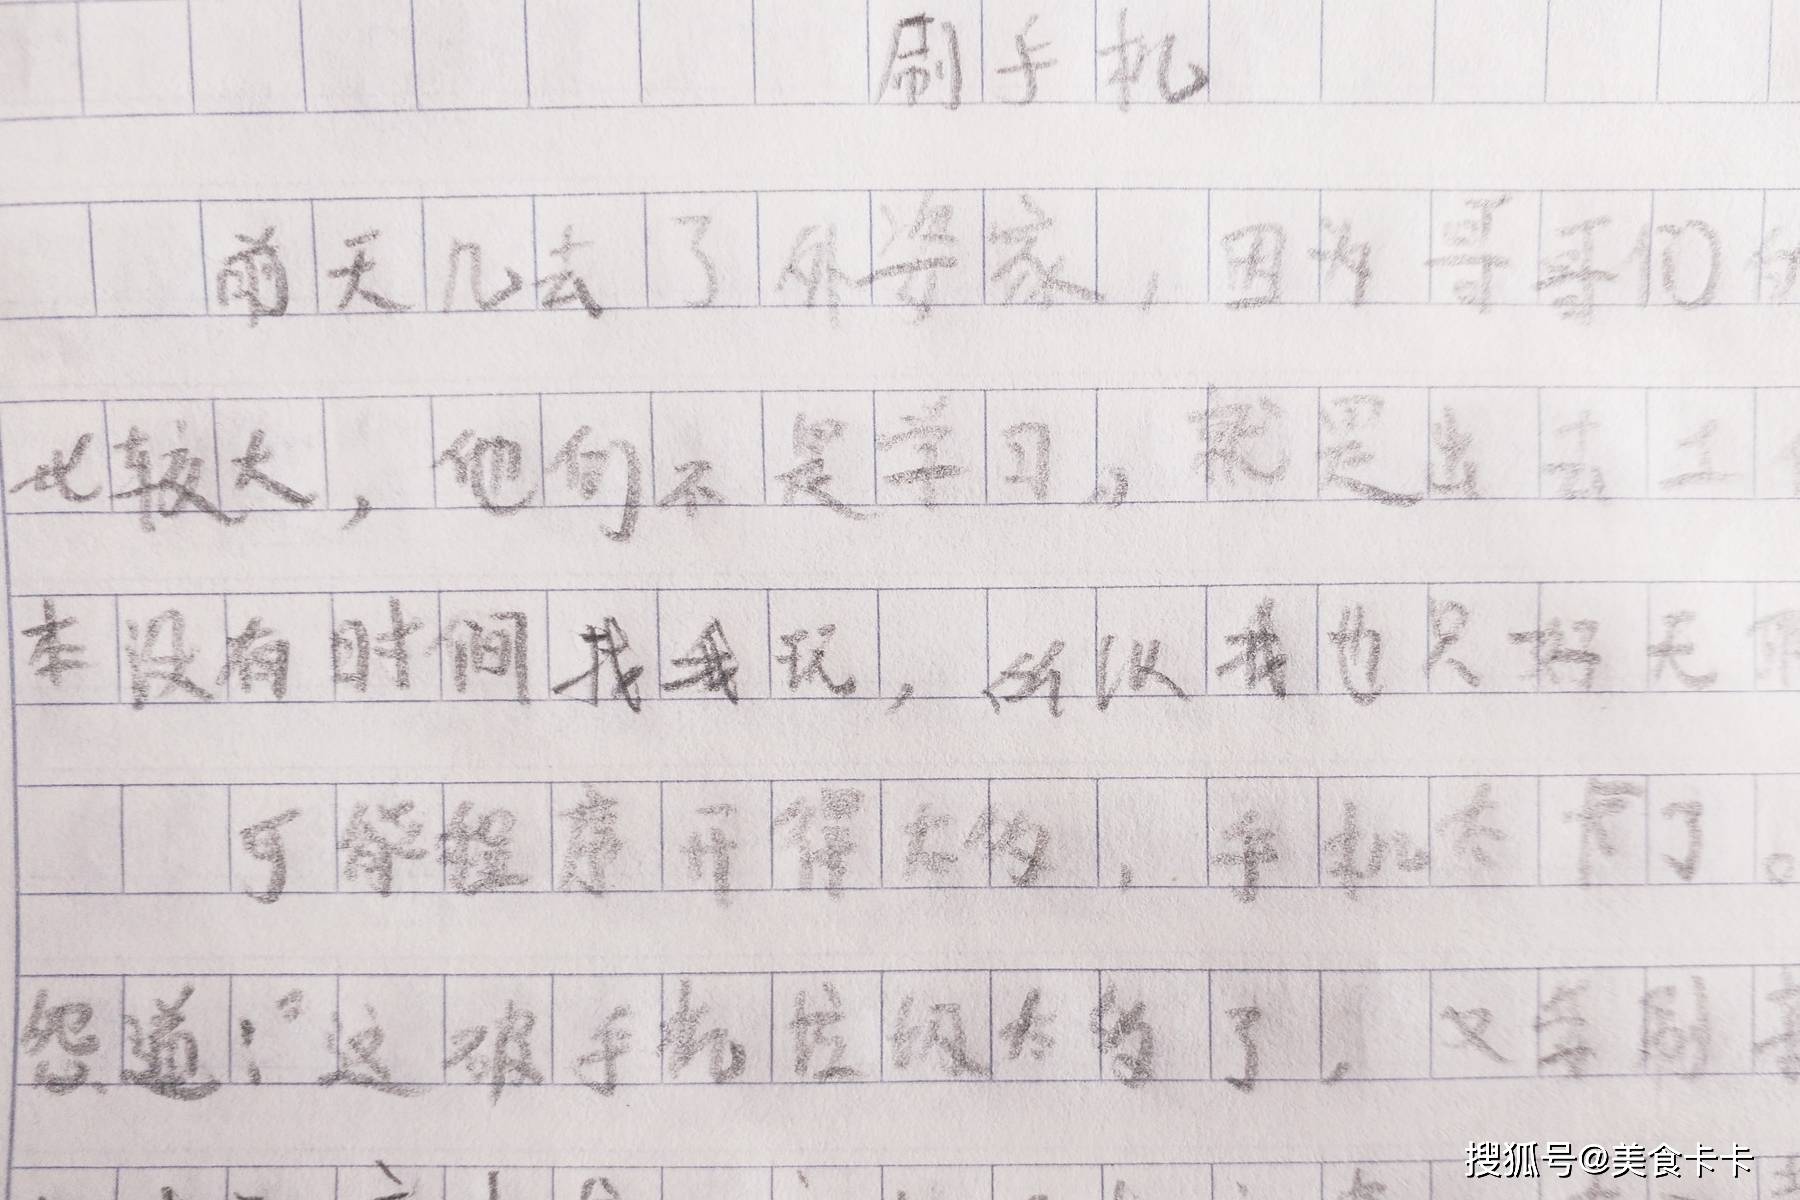 刷手机
前天几去了外婆家,因为哥哥们
比较大,他们不是学习,就是出去工
本没有时间找我玩,所以我也只好无
可能程序开得太多,手机太卡了。
怨道:“这破手机垃圾太多了,又拿刷
搜狐号@美食卡卡